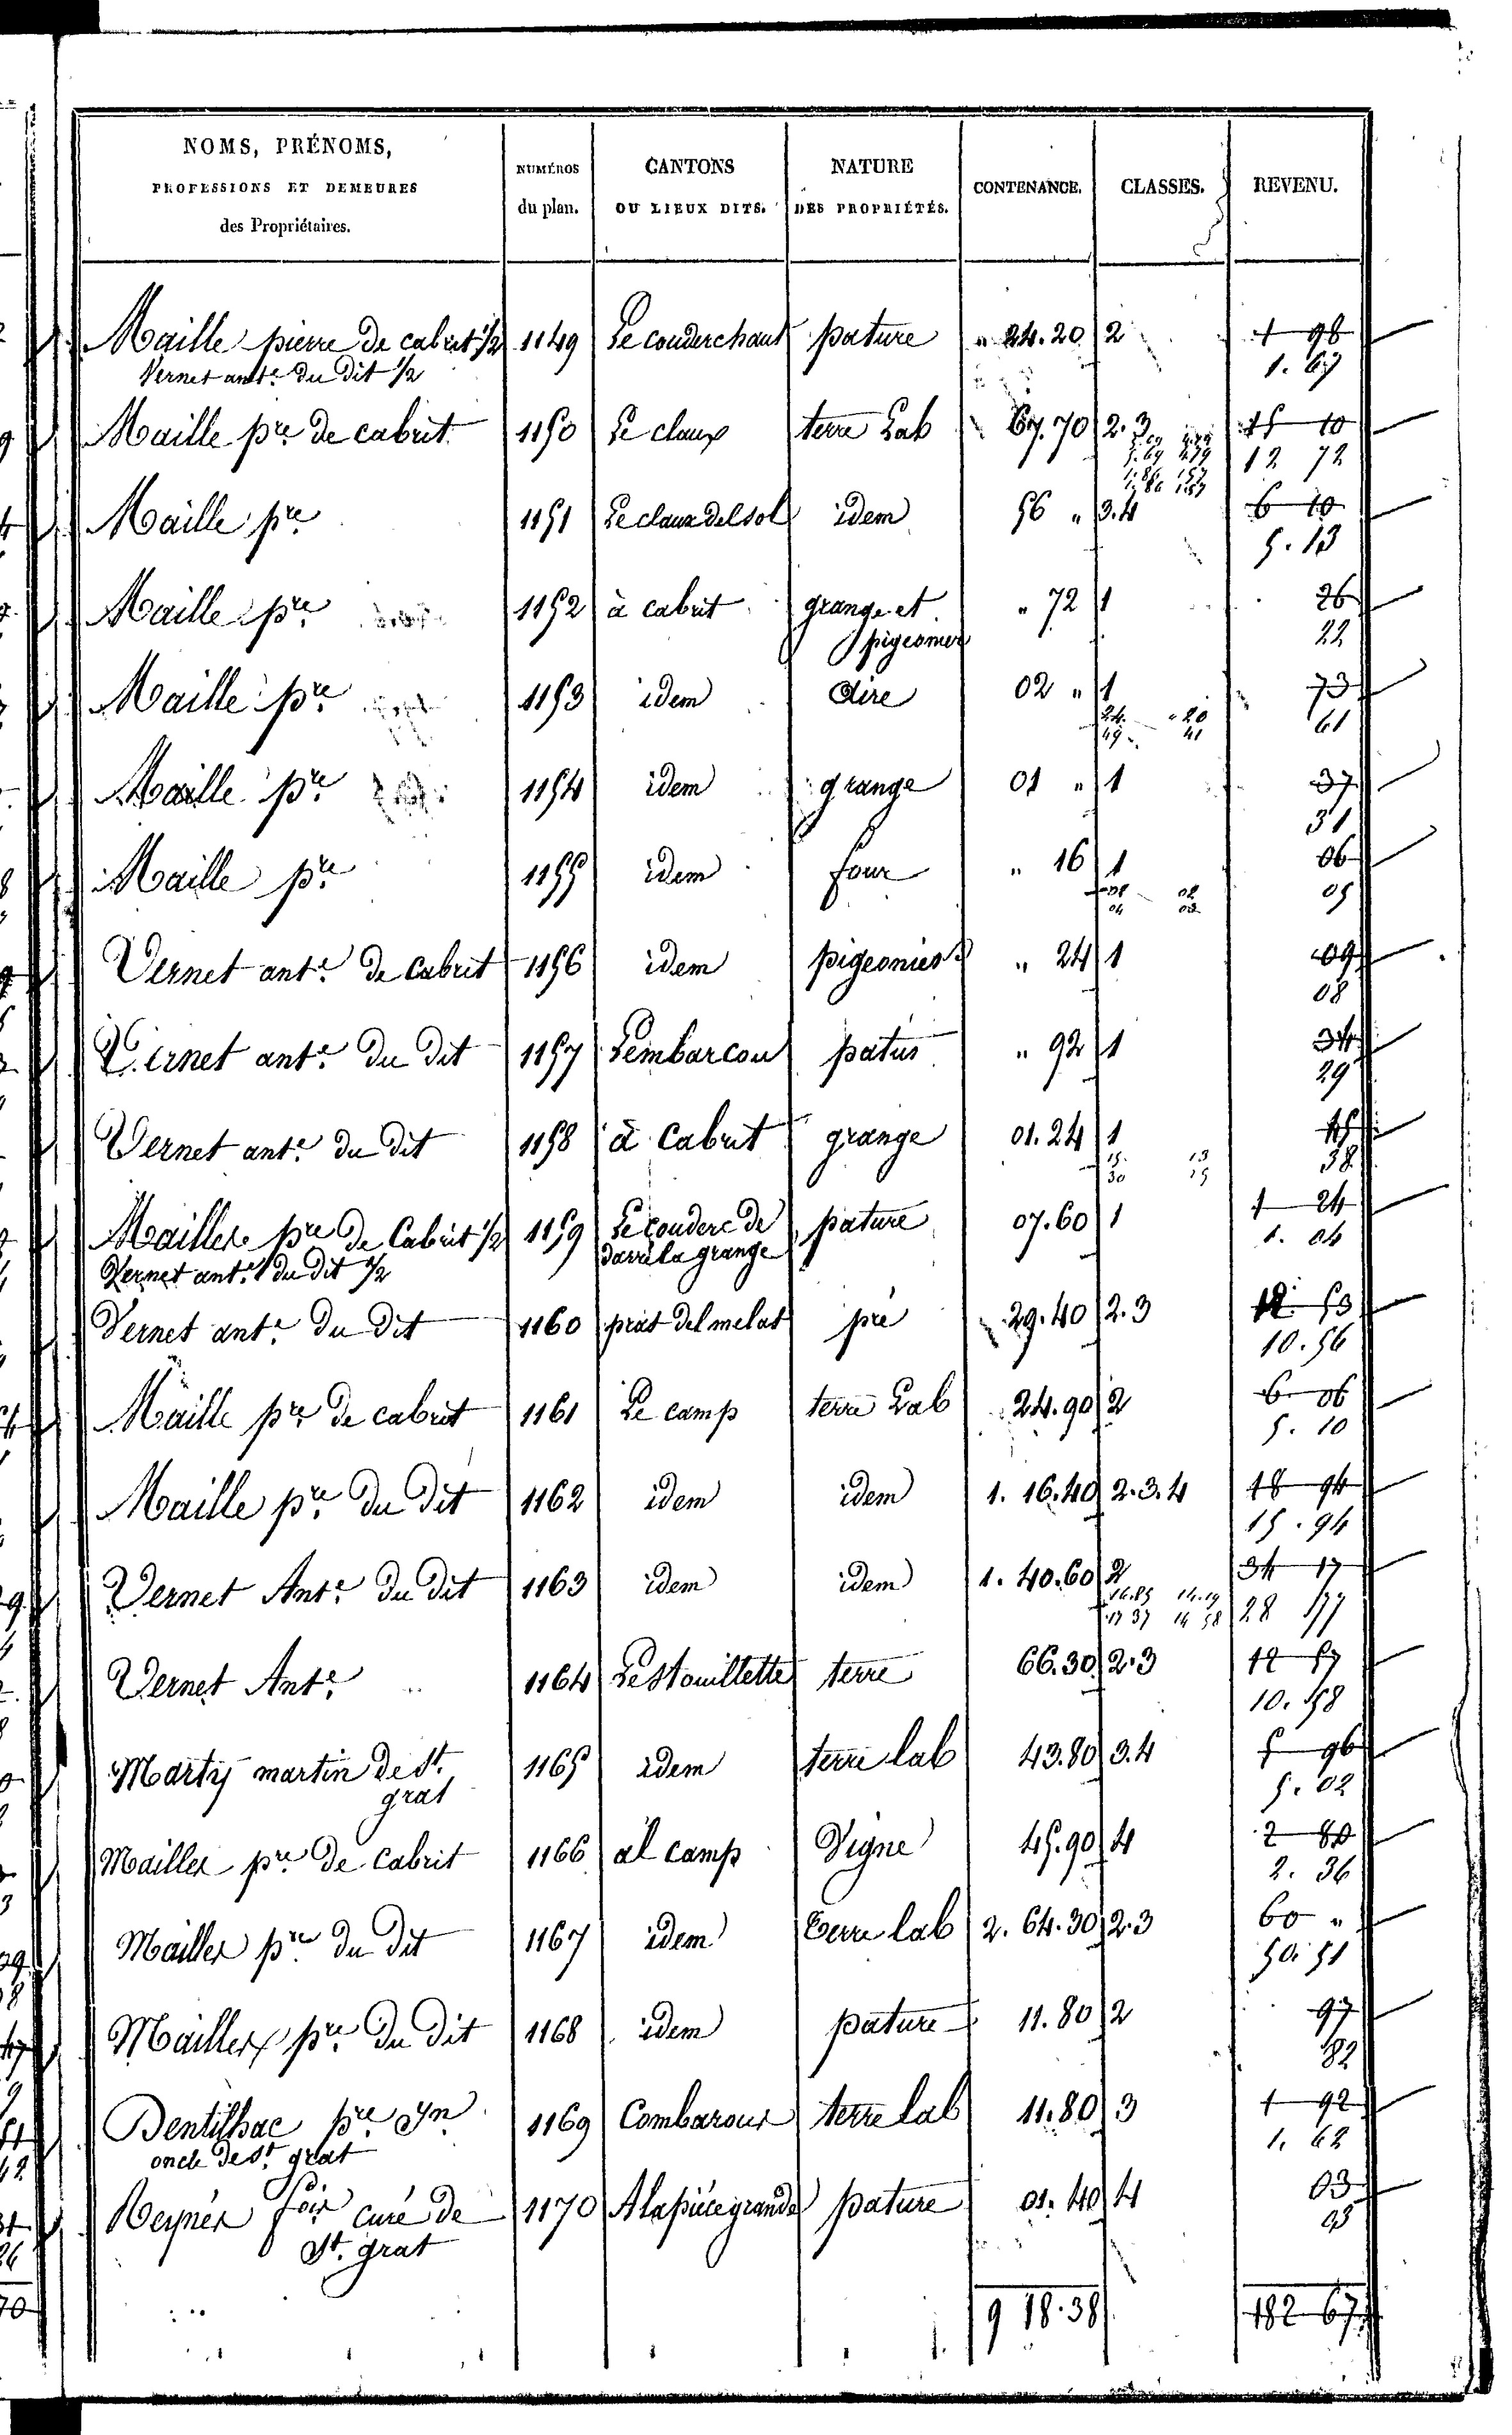 NOMS, PRÉNOMS, PROFESSIONS ET DEMEURES des Propriétaires. | NUMÉROS du plan. | CANTONS OU LIEUX DITS. | NATURE DES PROPRIÉTÉS. | CONTENANCE. | CLASSES. | REVENU.
Maille pierre de cabrit 1/2 | 1149 | Le couderc haut | pature | " 24.20 | 2 | 1 98
Vernet ante. du dit 1/2 | 1. 67
Maille pre. de cabrit | 1150 | Le claux | terre Lab | 67.70 | 2.3 | 15 10
12 72
Maille pre. | 1151 | Le claux del sol | idem | 56 " | 3.4 | 6 10
5. 13
Maille pre. | 1152 | à cabrit | grange et | " 72 | 1 | 26
pigeonier | 22
Maille pre. | 1153 | idem | aire | 02 " | 1 | 73
24. " 20 | 61
49. 41
Maille pre. | 1154 | idem | grange | 01 " | 1 | 37
31
Maille pre. | 1155 | idem | four | " 16 | 1 | 06
02 | 05
04
Vernet ante. de Cabrit | 1156 | idem | pigeonier | " 24 | 1 | 09
08
Vernet ante. du dit | 1157 | Lembarcou | patus | " 92 | 1 | 34
29
Vernet ante. du dit | 1158 | à Cabrit | grange | 01.24 | 1 | 45
15. 13 | 38
30
Mailles pre. de Cabrit 1/2 | 1159 | Le couderc de | pature | 07.60 | 1 | 1 24
Vernet ante. du dit 1/2 | darrè la grange | 1. 04
Vernet ante. du dit | 1160 | prat del melat | pré | 29.40 | 2.3 | 12 53
10.56
Maille pre. de cabrit | 1161 | Le camp | terre Lab | 24.90 | 2 | 6 06
5. 10
Maille pre. du dit | 1162 | idem | idem | 1. 16.40 | 2.3.4 | 18 94
15.94
Vernet Ante. du dit | 1163 | idem | idem | 1. 40.60 | 2 | 34 17
28 77
Vernet Ante. | 1164 | Lestouillette | terre | 66.30 | 2.3 | 12 57
10.58
Marty martin de st. | 1165 | idem | terre lab | 43.80 | 3.4 | 5 96
grat | 5.02
Mailles pre. de cabrit | 1166 | al camp | Vigne | 45.90 | 4 | 2 80
2. 36
Mailles pre. du dit | 1167 | idem | terre lab | 2. 64.30 | 2.3 | 60 "
50.51
Mailles pre. du dit | 1168 | idem | pature | 11.80 | 2 | 97
82
Dentilhac pre. Jn. | 1169 | Combaroux | terre lab | 11.80 | 3 | 1 92
oncle de st. grat | 1. 62
curé de | 1170 | A la piéce grande | pature | 01.40 | 4 | 03
St. grat | 03
9 18.38 | 182 67